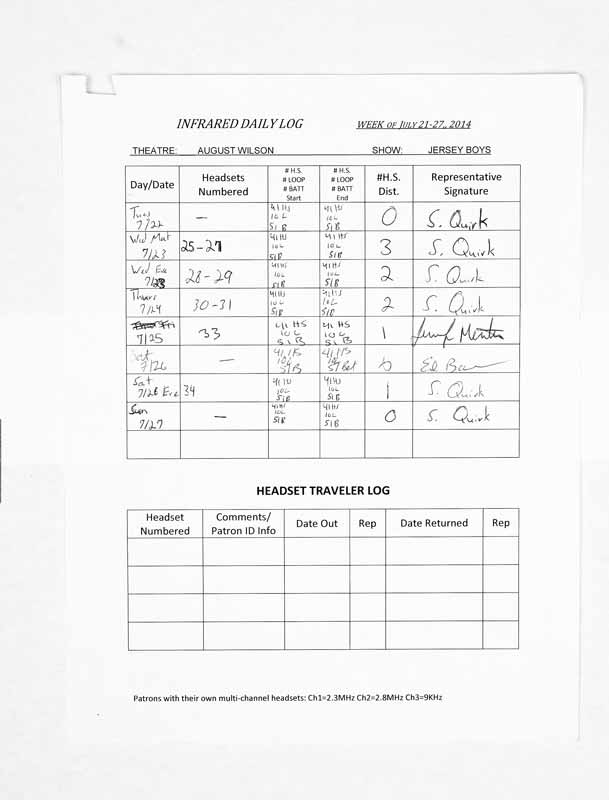 INFRARED DAILY LOG WEEK OF JULY 21-27, 2014
THEATRE: AUGUST WILSON SHOW: JERSEY BOYS
Day/Date Headsets Numbered # H.S. # LOOP # BATT Start # H.S. # LOOP # BATT End #H.S. Dist. Representative Signature
Tues 7/22 — 41 HS 10 L 51 B 41 HS 10 L 51 B 0 S. Quirk
Wed Mat 7/23 25-27 41 HS 10 L 51 B 41 HS 10 L 51 B 3 S. Quirk
Wed Eve 7/23 28-29 41 HS 10 L 51 B 41 HS 10 L 51 B 2 S. Quirk
Thurs 7/24 30-31 41 HS 10 L 51 B 41 HS 10 L 51 B 2 S. Quirk
Fri 7/25 33 41 HS 10 L 51 B 41 HS 10 L 51 B 1
Sat 7/26 — 41 HS 10L 51 B 41 HS 51 Bat 0 Ed
Sat 7/26 Eve 34 41 HS 10L 51B 41 HS 10L 51B 1 S. Quirk
Sun 7/27 — 41 HS 10L 51B 41 HS 10L 51B 0 S. Quirk
HEADSET TRAVELER LOG
Headset Numbered Comments/ Patron ID Info Date Out Rep Date Returned Rep
Patrons with their own multi-channel headsets: Ch1=2.3MHz Ch2=2.8MHz Ch3=9KHz